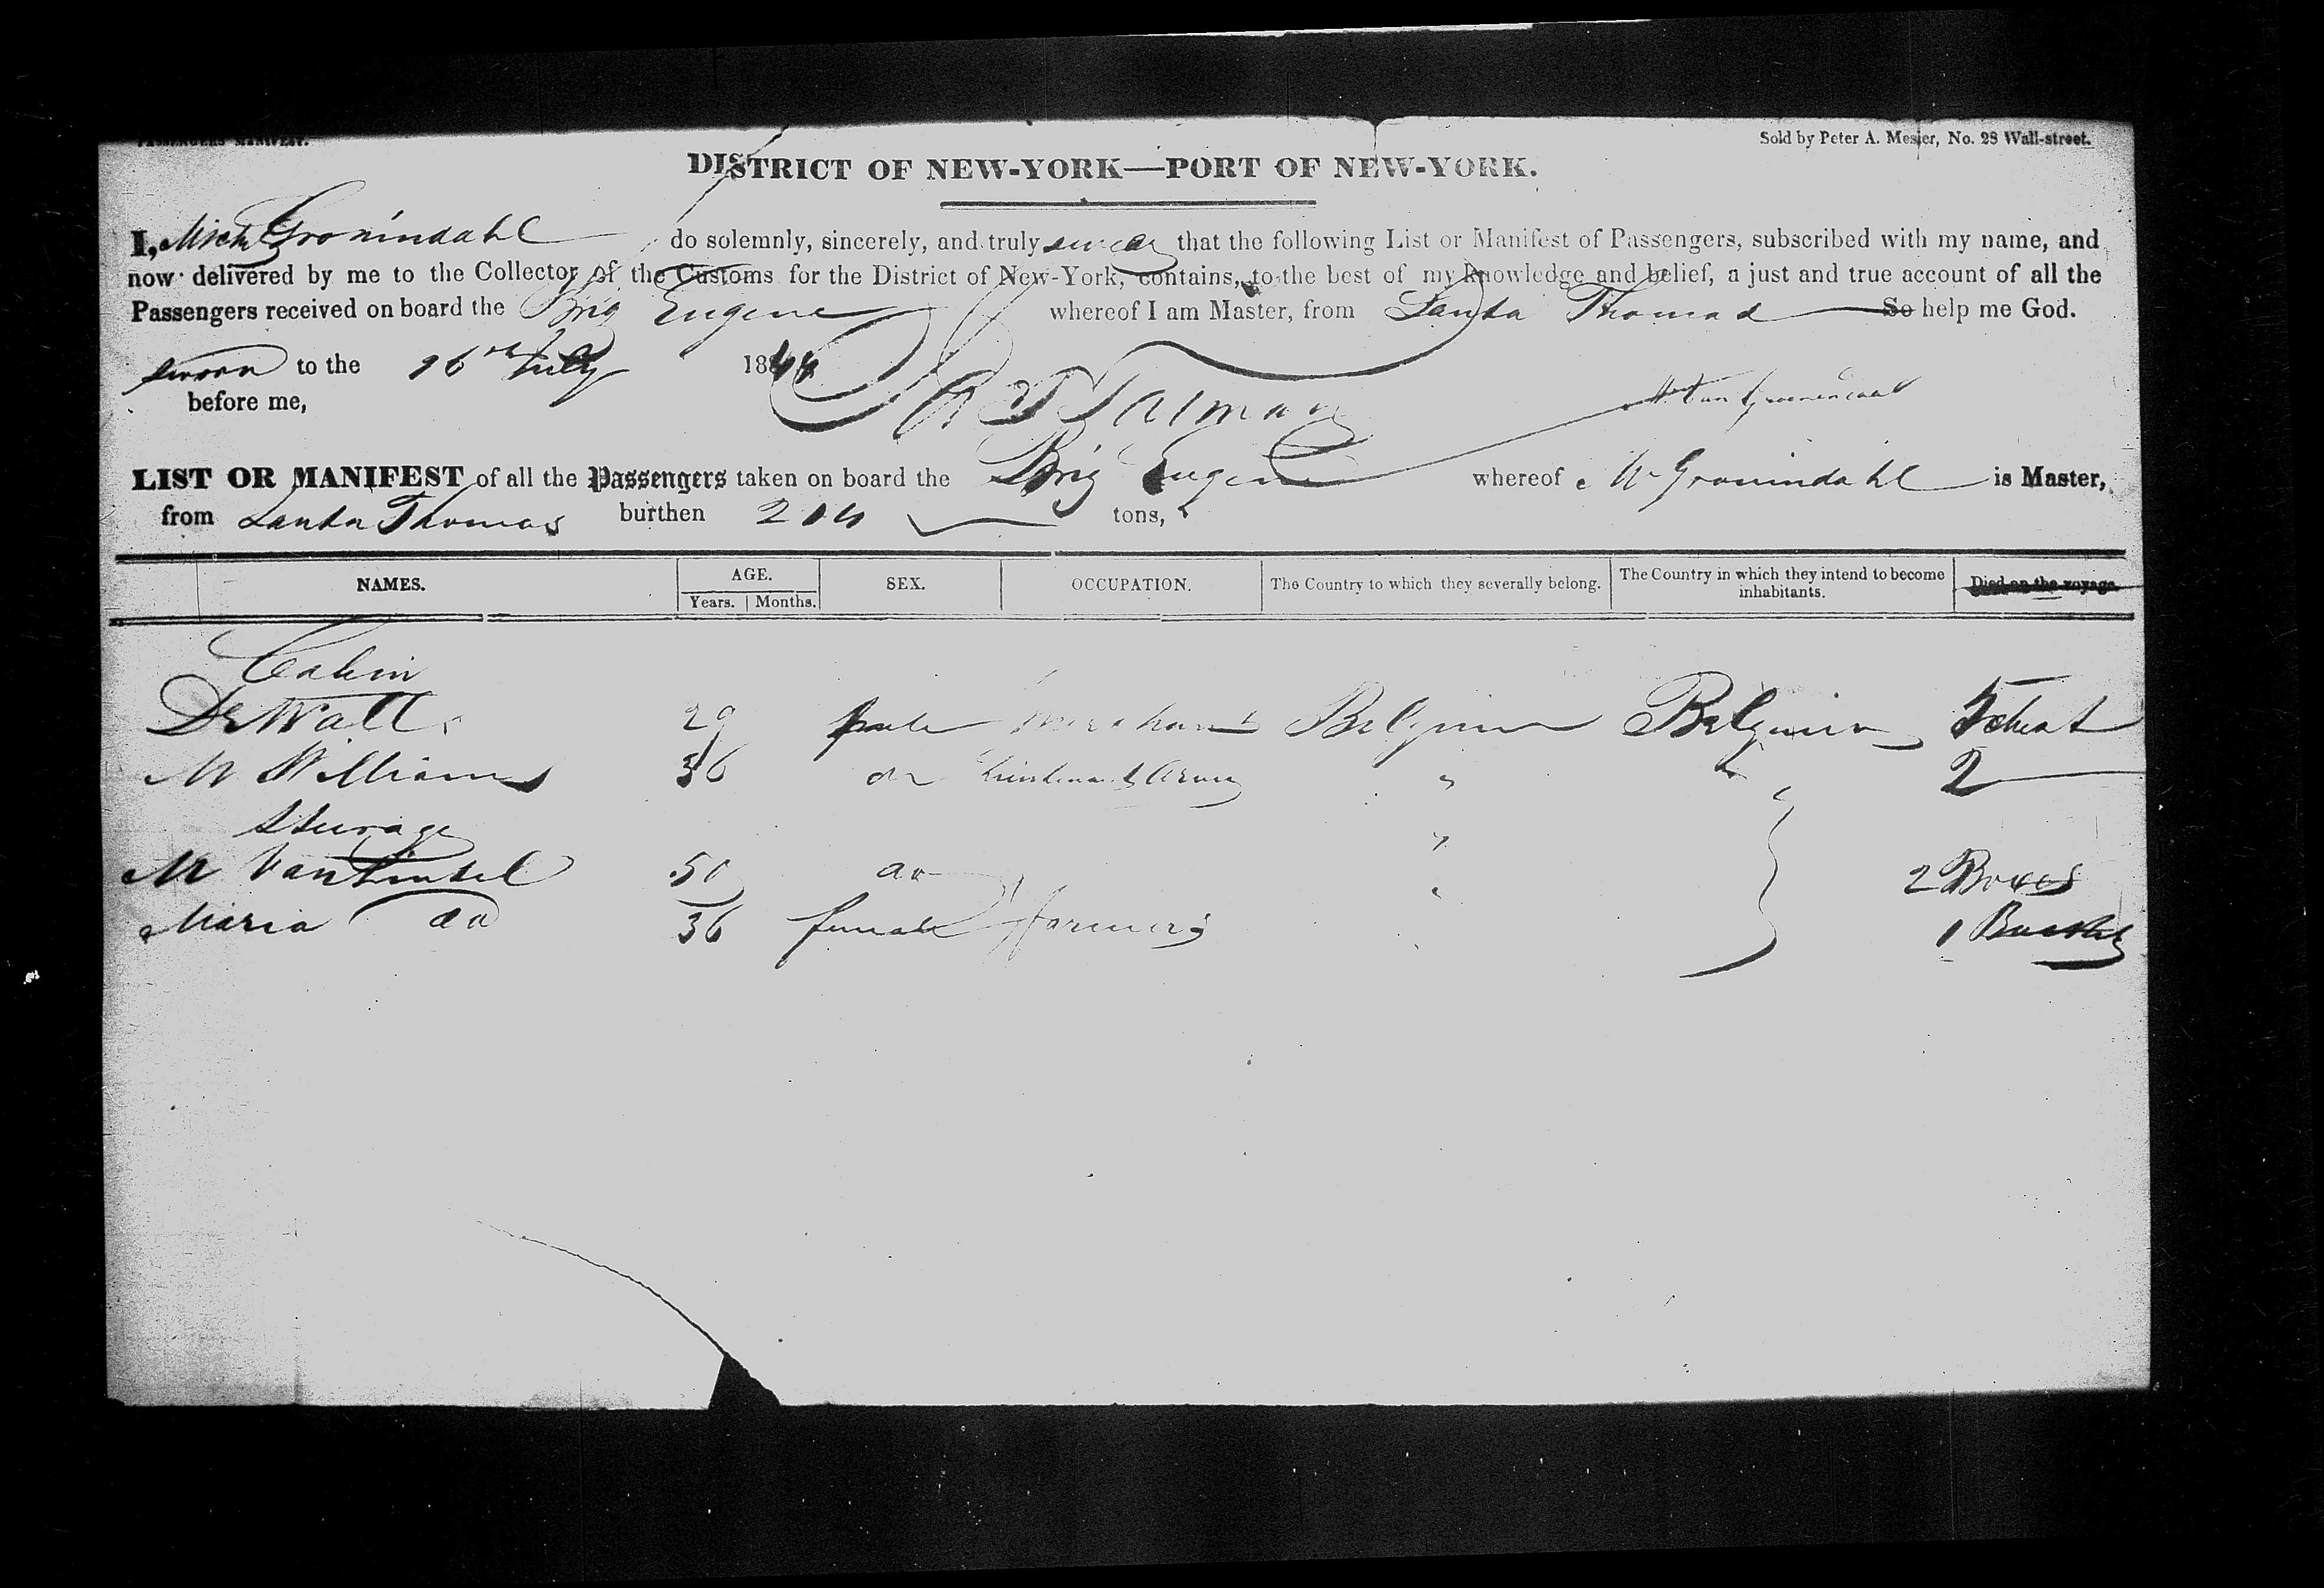 PASSENGERS MANIFEST.
Sold by Peter A. Mesier, No. 28 Wall-street.
DISTRICT OF NEW-YORK—PORT OF NEW-YORK.
I, Gronindahl do solemnly, sincerely, and truly swear that the following List or Manifest of Passengers, subscribed with my name, and
now delivered by me to the Collector of the Customs for the District of New-York, contains, to the best of my knowledge and belief, a just and true account of all the
Passengers received on board the Brig Eugene whereof I am Master, from Santa Thomas So help me God.
sworn to the 16th July 1844
before me,
LIST OR MANIFEST of all the Passengers taken on board the Brig Eugene whereof M Gronindahl is Master,
from Santa Thomas burthen tons,
NAMES. AGE. Years. Months. SEX. OCCUPATION. The Country to which they severally belong. The Country in which they intend to become inhabitants. Died on the voyage.
Cabin
De Wall 29 male Merchant Belgium Belgium
M William 36 do Lieutenant Army " " 2
Steerage "
M Van 50 do " 2 Boxes
Maria do 36 female farmers 1